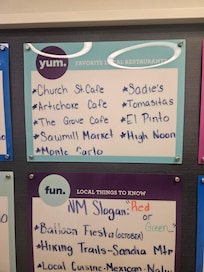 yum.
FAVORITE LOCAL RESTAURANTS
*Church St Cafe
*Artichoke Cafe
*The Grove Cafe
*Sawmill Market
*Monte Carlo
*Sadie's
*Tomasitas
*El Pinto
*High Noon
fun.
LOCAL THINGS TO KNOW
NM Slogan: "Red
or
Green"
*Balloon Fiesta (OCTOBER)
*Hiking Trails-Sandia Mtn
*Local Cuisine-Mexican